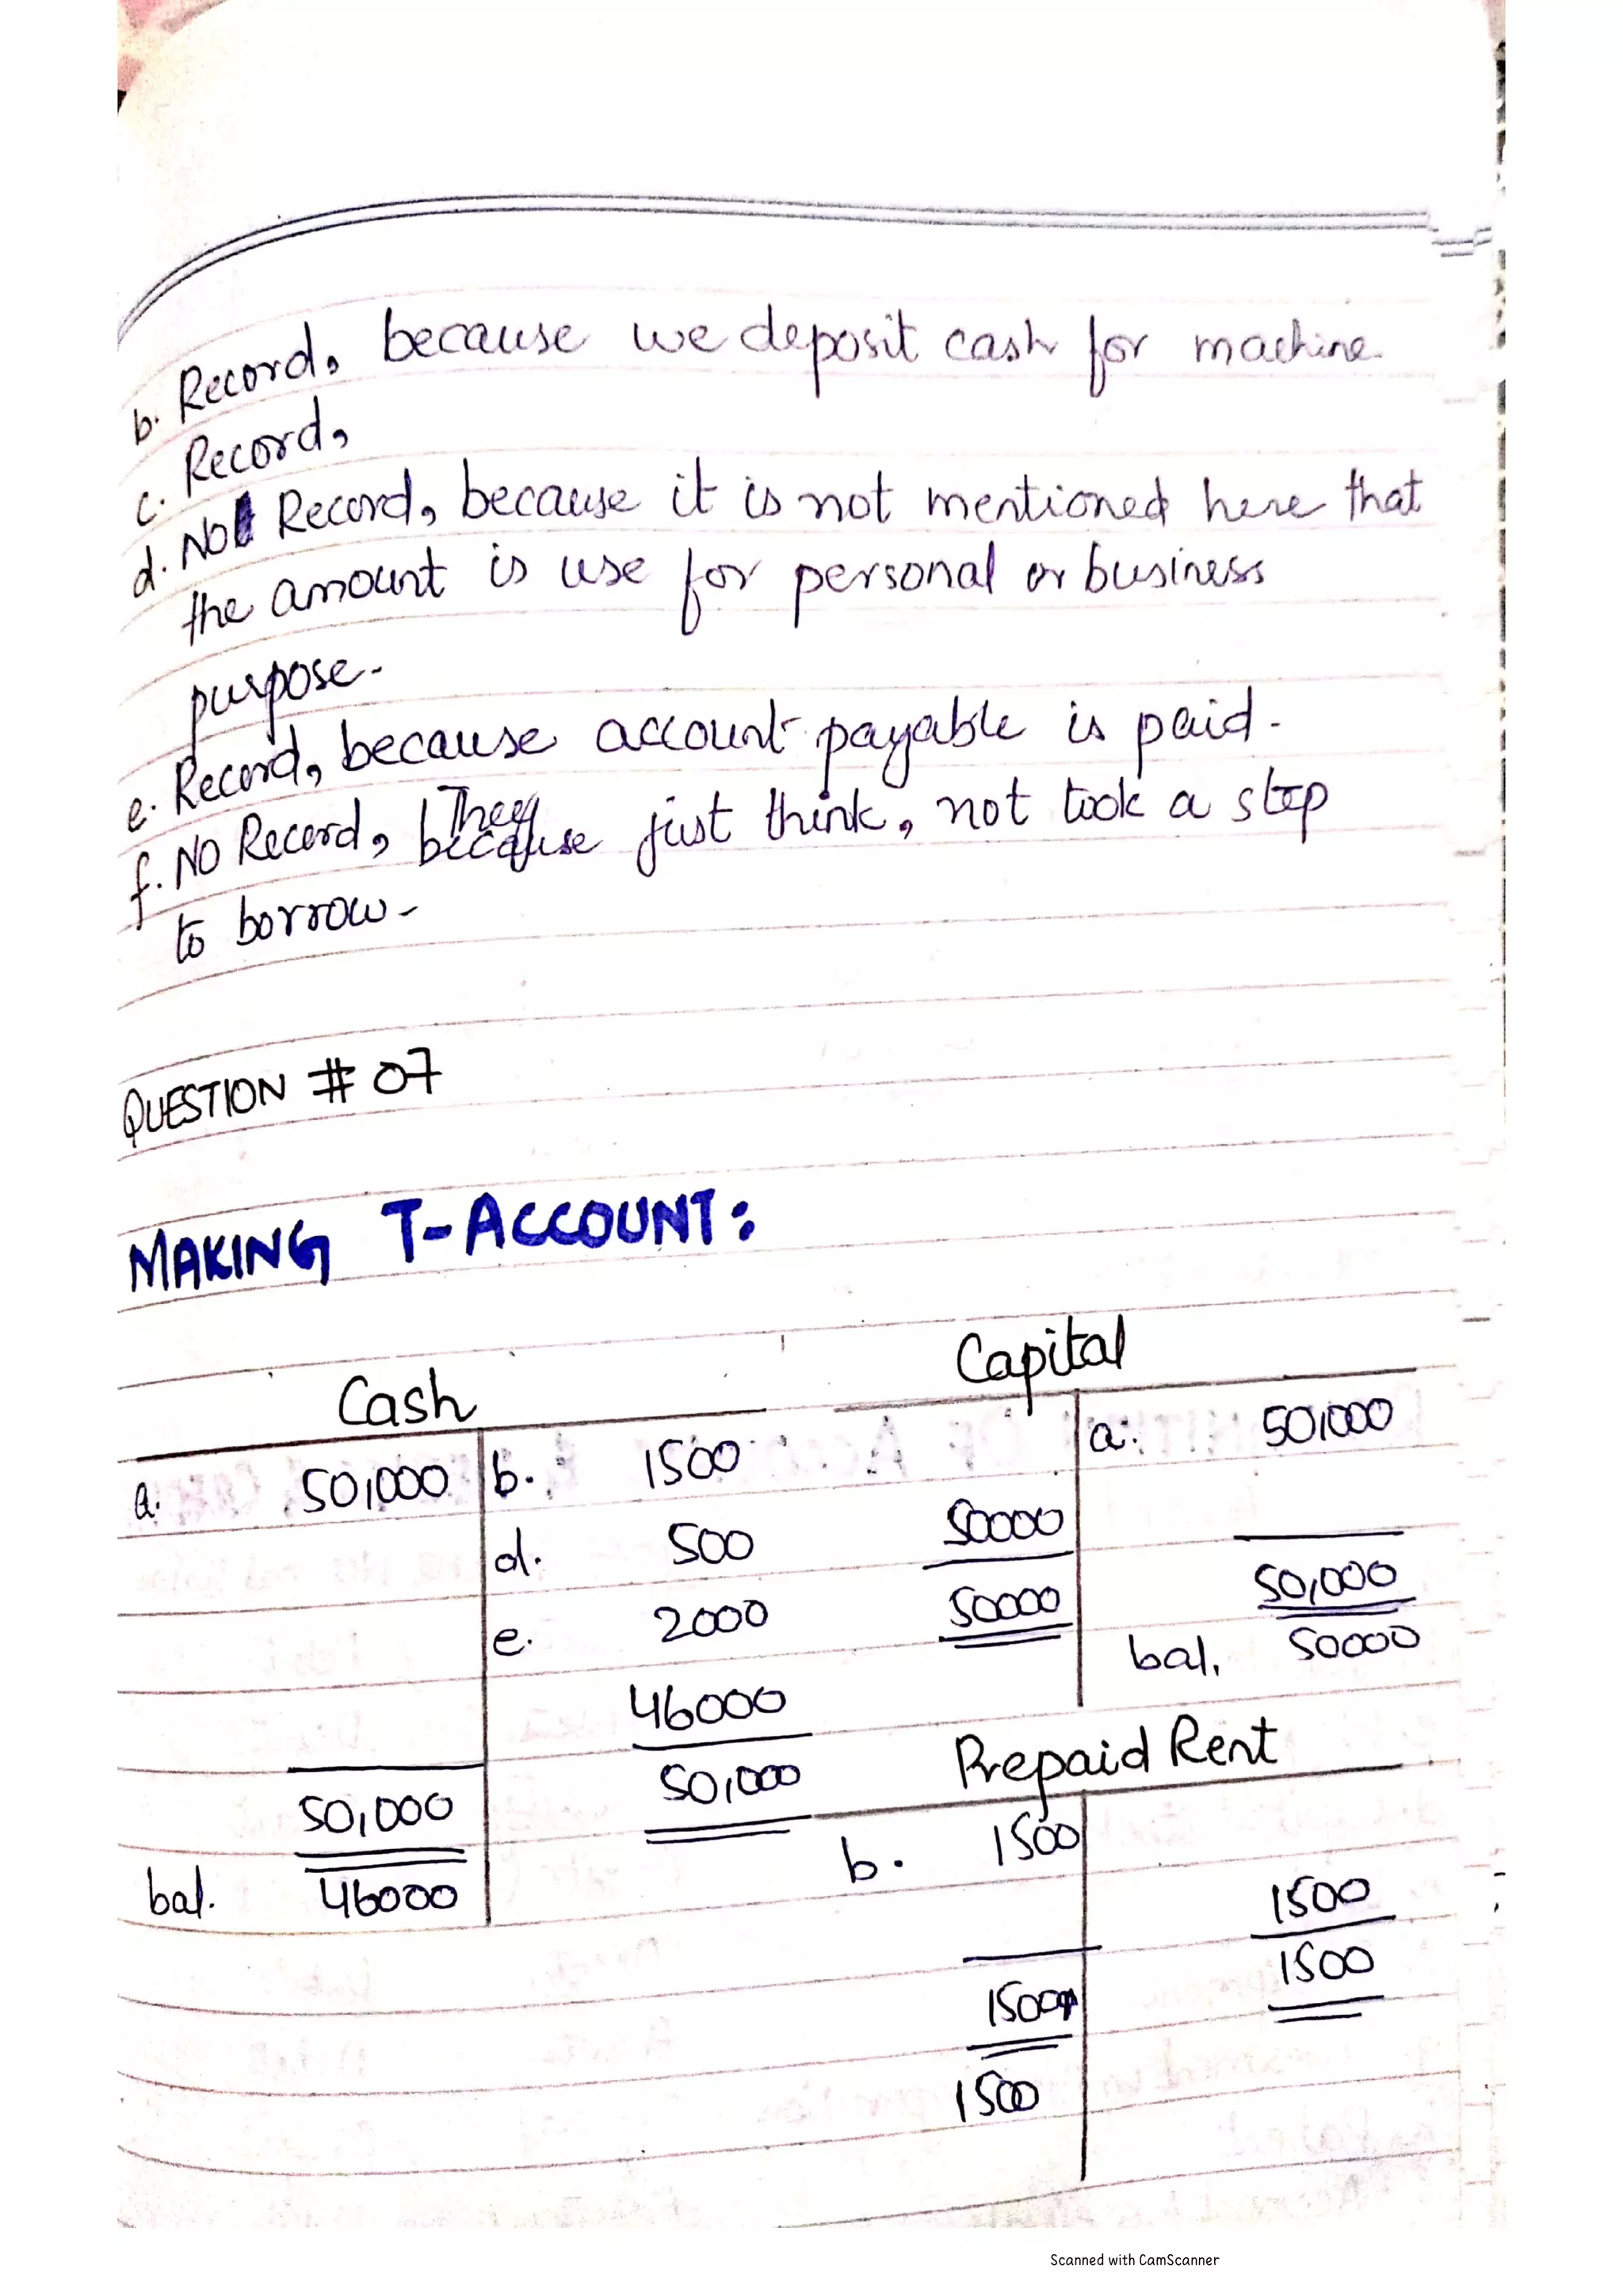 b. Record, because we deposit cash for machine.
c. Record,
d. No Record, because it is not mentioned here that
the amount is use for personal or business
purpose.
e. Record, because account payable is paid.
f. NO Record, because They just think, not took a step
to borrow.
QUESTION # 07
MAKING T-ACCOUNT:
Cash
a. 50,000 b. 1500
d. 500
e. 2000
46000
50,000 50,000
bal. 46000
Capital
a. 50,000
50000
50000 50,000
bal. 50000
Prepaid Rent
b. 1500
1500
1500 1500
1500
Scanned with CamScanner